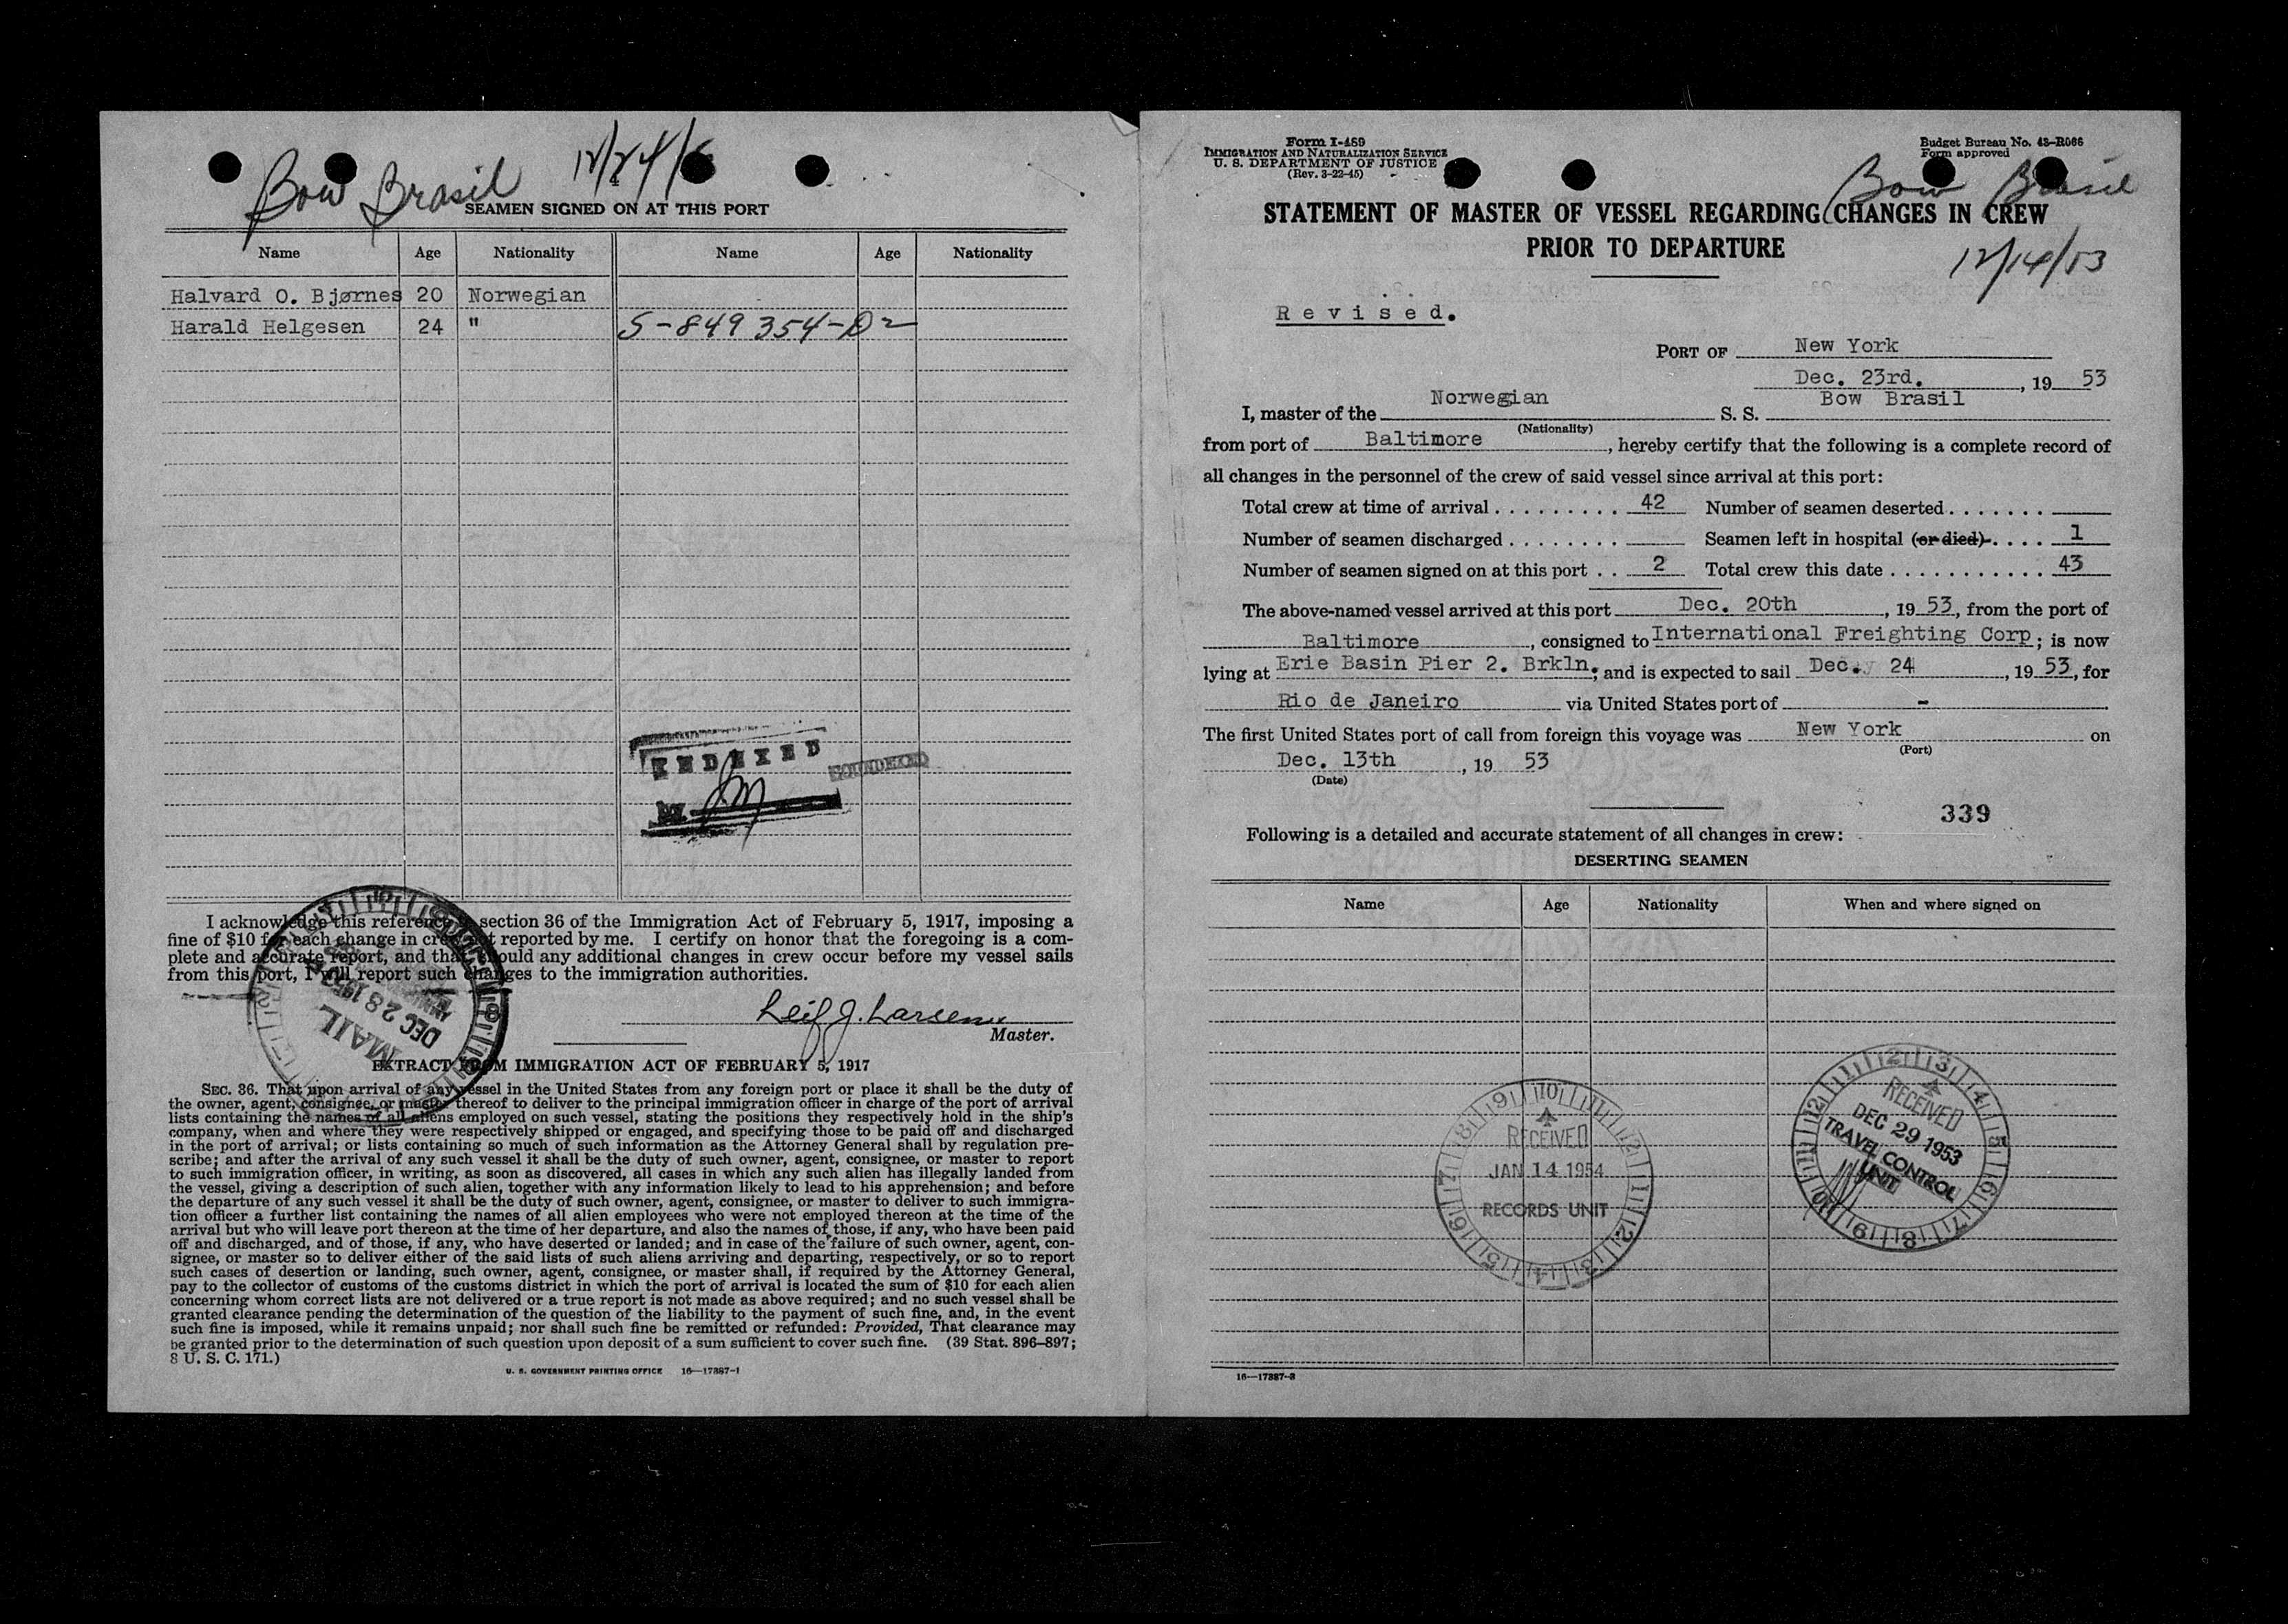 Bow Brasil 12/24/5
4
SEAMEN SIGNED ON AT THIS PORT
Name Age Nationality Name Age Nationality
Halvard O. Bjørnes 20 Norwegian
Harald Helgesen 24 " S-849354-D2
INDEXED
By
I acknowledge this reference section 36 of the Immigration Act of February 5, 1917, imposing a
fine of $10 for each change in crew not reported by me. I certify on honor that the foregoing is a com-
plete and accurate report, and that should any additional changes in crew occur before my vessel sails
from this port, I will report such changes to the immigration authorities.
MAIL
DEC 28 1953
Leif J. Larsen
Master.
EXTRACT FROM IMMIGRATION ACT OF FEBRUARY 5, 1917
SEC. 36. That upon arrival of any vessel in the United States from any foreign port or place it shall be the duty of
the owner, agent, consignee, or master thereof to deliver to the principal immigration officer in charge of the port of arrival
lists containing the names of all aliens employed on such vessel, stating the positions they respectively hold in the ship's
company, when and where they were respectively shipped or engaged, and specifying those to be paid off and discharged
in the port of arrival; or lists containing so much of such information as the Attorney General shall by regulation pre-
scribe; and after the arrival of any such vessel it shall be the duty of such owner, agent, consignee, or master to report
to such immigration officer, in writing, as soon as discovered, all cases in which any such alien has illegally landed from
the vessel, giving a description of such alien, together with any information likely to lead to his apprehension; and before
the departure of any such vessel it shall be the duty of such owner, agent, consignee, or master to deliver to such immigra-
tion officer a further list containing the names of all alien employees who were not employed thereon at the time of the
arrival but who will leave port thereon at the time of her departure, and also the names of those, if any, who have been paid
off and discharged, and of those, if any, who have deserted or landed; and in case of the failure of such owner, agent, con-
signee, or master so to deliver either of the said lists of such aliens arriving and departing, respectively, or so to report
such cases of desertion or landing, such owner, agent, consignee, or master shall, if required by the Attorney General,
pay to the collector of customs of the customs district in which the port of arrival is located the sum of $10 for each alien
concerning whom correct lists are not delivered or a true report is not made as above required; and no such vessel shall be
granted clearance pending the determination of the question of the liability to the payment of such fine, and, in the event
such fine is imposed, while it remains unpaid; nor shall such fine be remitted or refunded: Provided, That clearance may
be granted prior to the determination of such question upon deposit of a sum sufficient to cover such fine. (39 Stat. 896–897;
8 U. S. C. 171.)
U. S. GOVERNMENT PRINTING OFFICE 16—17387-1
Form I-489
IMMIGRATION AND NATURALIZATION SERVICE
U. S. DEPARTMENT OF JUSTICE
(Rev. 3-22-45)
Budget Bureau No. 43-R066
Form approved
Bow Brasil
STATEMENT OF MASTER OF VESSEL REGARDING CHANGES IN CREW
PRIOR TO DEPARTURE
12/14/53
Revised.
PORT OF New York
Dec. 23rd. , 19 53
I, master of the Norwegian S. S. Bow Brasil
(Nationality)
from port of Baltimore , hereby certify that the following is a complete record of
all changes in the personnel of the crew of said vessel since arrival at this port:
Total crew at time of arrival . . . . . . . . . 42 Number of seamen deserted . . . . . . .
Number of seamen discharged . . . . . . . . Seamen left in hospital (or died) . . . . 1
Number of seamen signed on at this port . . 2 Total crew this date . . . . . . . . . . . . 43
The above-named vessel arrived at this port Dec. 20th , 19 53, from the port of
Baltimore , consigned to International Freighting Corp ; is now
lying at Erie Basin Pier 2. Brkln. ; and is expected to sail Dec. 24 , 19 53, for
Rio de Janeiro via United States port of -
The first United States port of call from foreign this voyage was New York on
(Port)
Dec. 13th , 19 53
(Date)
339
Following is a detailed and accurate statement of all changes in crew:
DESERTING SEAMEN
Name Age Nationality When and where signed on
RECEIVED
JAN 14 1954
RECORDS UNIT
RECEIVED
DEC 29 1953
TRAVEL CONTROL
UNIT
16—17387-2